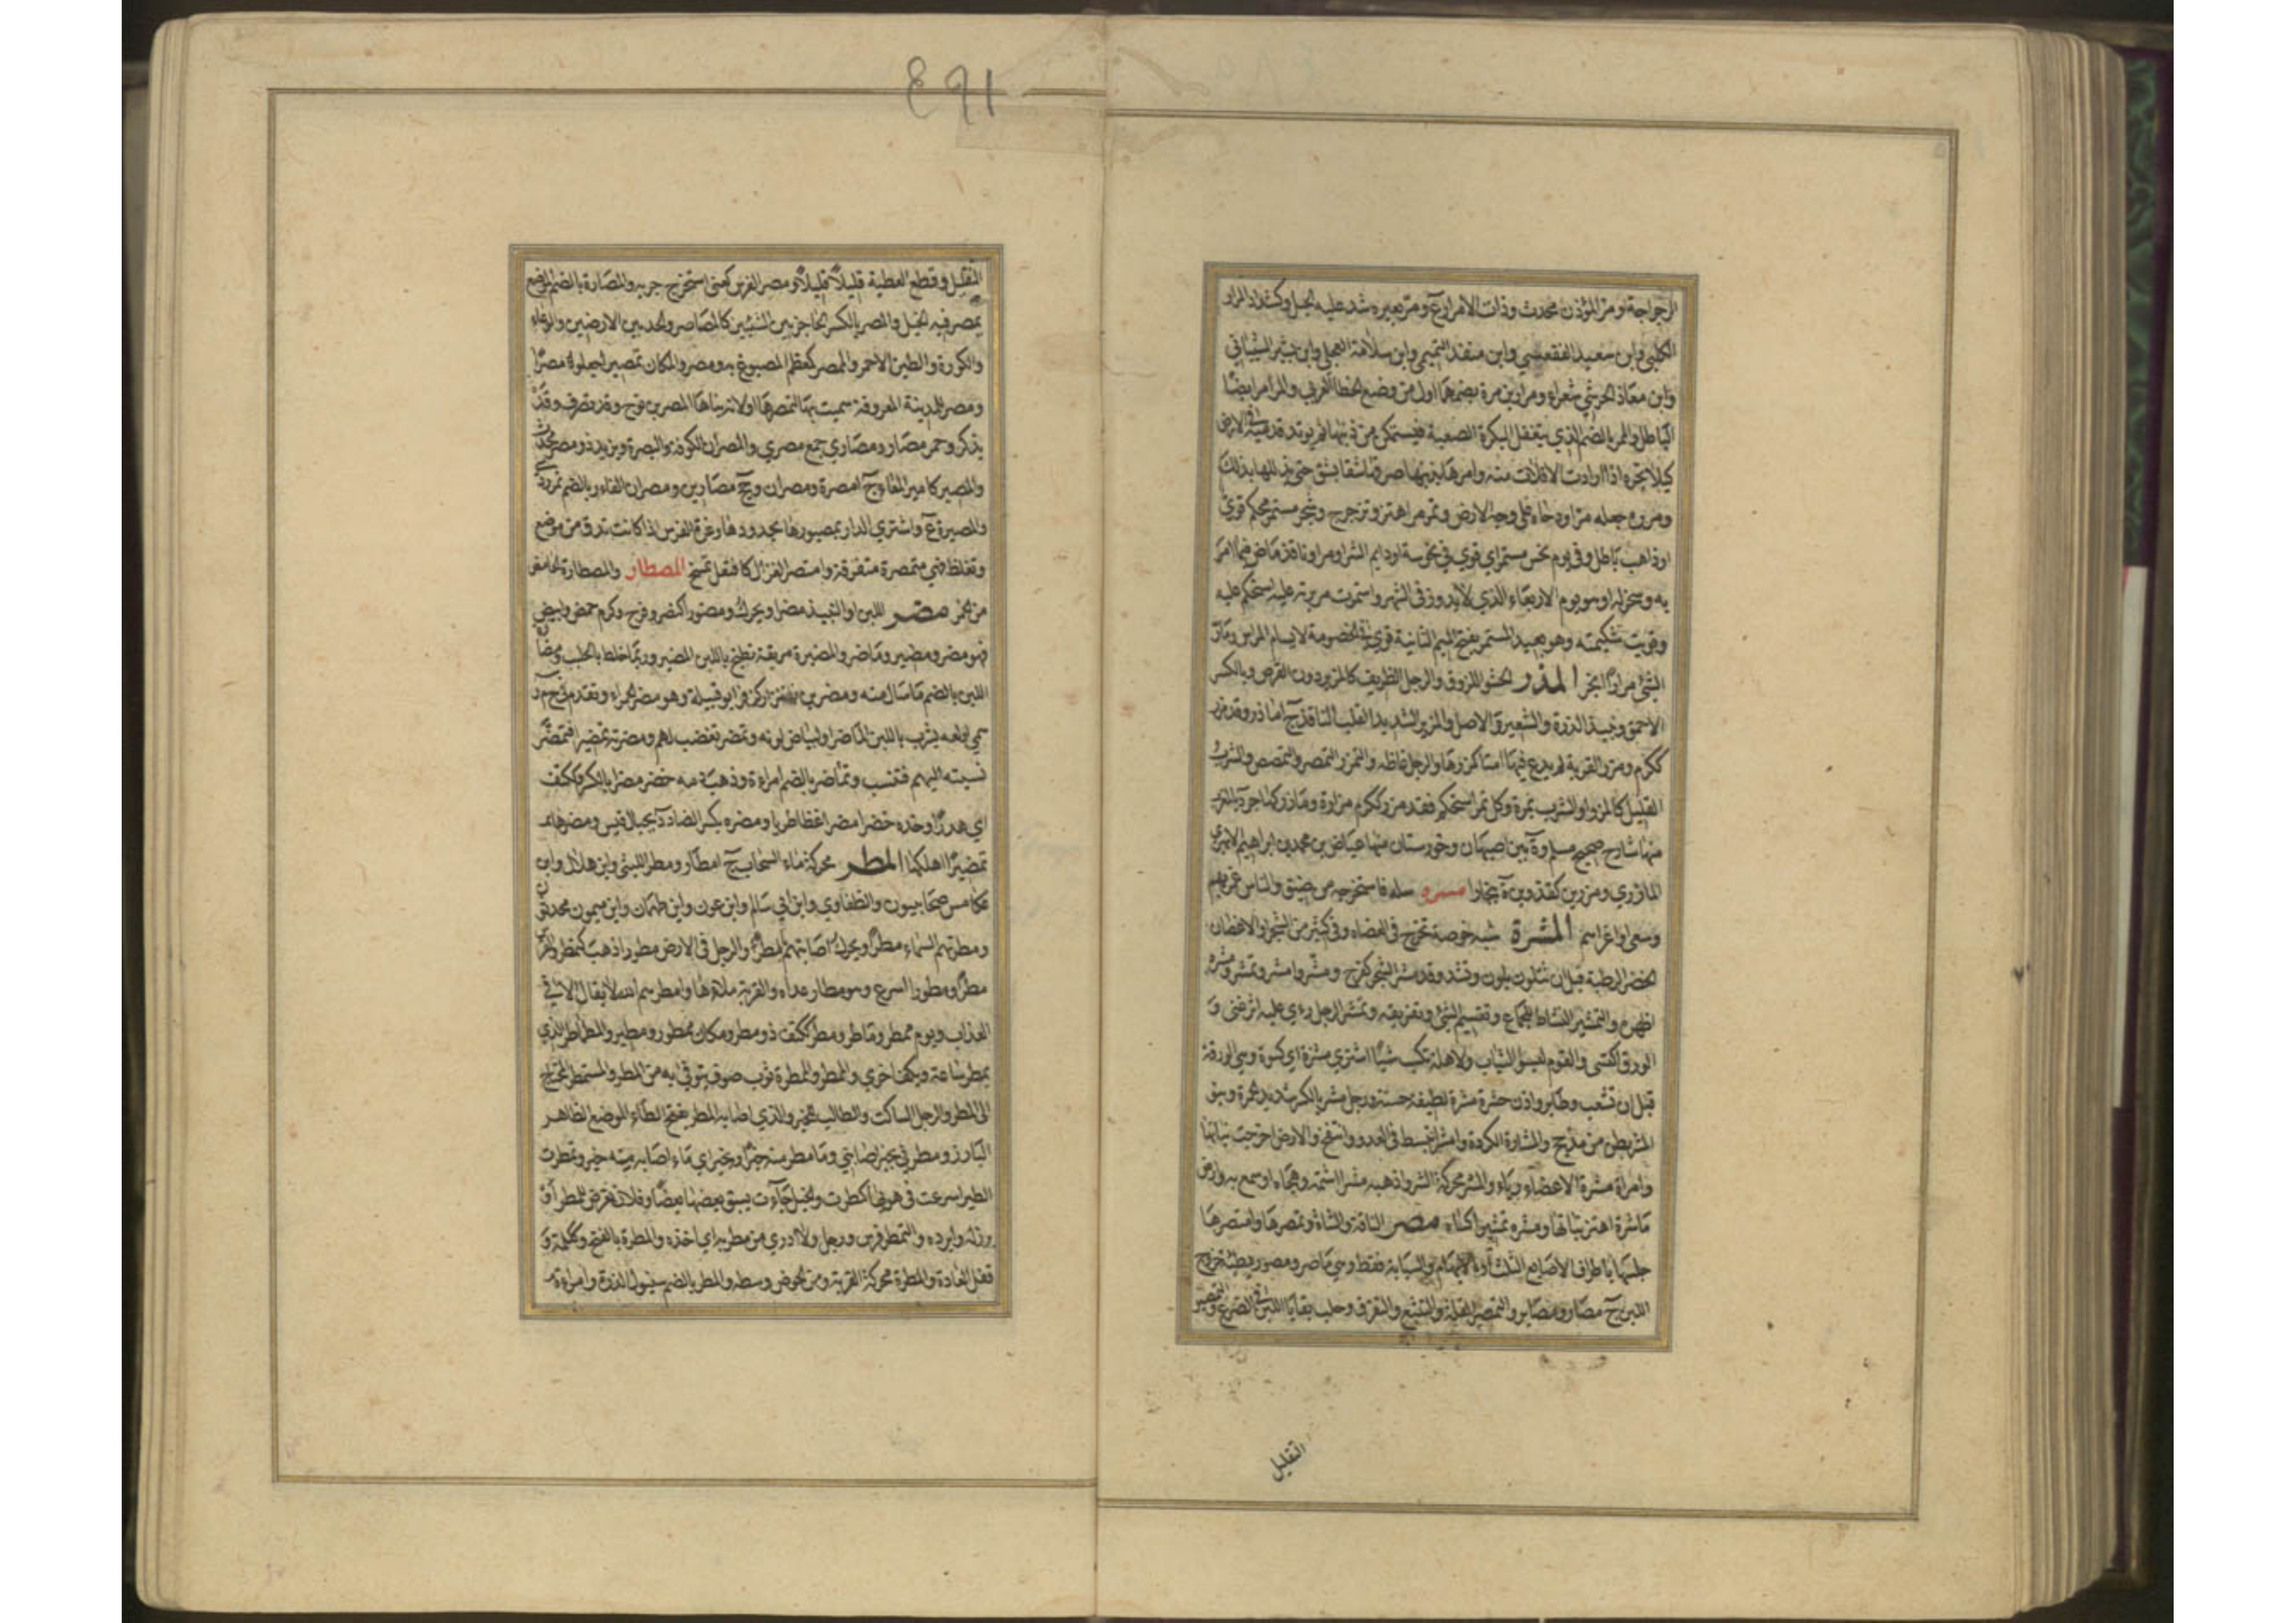 الرجراجة ومر المؤذن محدث وذات الامرار ع ومر بعيره شد عليه الحبل وكشداد المرار
الكلبي وابن سعيد الفقعسي وابن منقذ التميمي وابن سلامة العجلي وابن بشير الشيباني
وابن معاذ الحرشي شعراء ومرار بن مرة بضمهما اول من وضع الخط العربي والمرامر ايضا
الباطل والممر بالضم الذي يتغفل البكرة الصعبة فيستمكن من ذنبها ثم يوتد قدميه في الارض
كيلا تجره اذا ارادت الافلات منه وامرها بذنبها صرفها شقا بشق حتى يذللها بذلك
ومرره جعله مرا ودحاه على وجه الارض وتمرمر اهتز وترجرج وسحر مستمر محكم قوي
او ذاهب باطل وفي يوم نحس مستمر اي قوي في نحوسة او دايم الشر او مر او نافذ ماض فيما امر
به وسخر له او هو يوم الاربعاء الذي لا يدور في الشهر واستمرت مريرته عليه استحكم عليه
وقويت شكيمته وهو بعيد المستمر بفتح الميم الثانية قوي في الخصومة لا يسام المراس ومار
الشئ مرارا انجر المزر الحسو للذوق والرجل الظريف كالمزير ودون القرص وبالكسر
الاحمق ونبيذ الذرة والشعير والاصل والمزير الشديد القلب النافذ ج امازر وقد مزر
ككرم ومزر القربة لم يدع فيها امتا كمزرها والرجل غاظه والتمزر التمصر والتمصص والشرب
القليل كالمزر او الشرب بمرة وكل ثمر استحكم فقد مزر ككرم مزارة ومازر كهاجر د بالمغرب
منها شارح صحيح مسلم وة بين اصبهان وخوزستان منها عياض بن محمد بن ابراهيم الابهري
المازري ومزرين كقزوين ة ببخارا مسره سله فاستخرجه من ضيق والناس غمزهم
وسعى او اغراهم المشرة شبه خوصة تخرج في العضاه وفي كثير من الشجر او الاغصان
الخضر الرطبة قبل ان تتلون بلون وتشتد وقد مشر الشجر كفرح ومشر وامشر وتمشر ومشره
اظهره والتمشير النشاط للجماع وتقسيم الشئ وتفريقه وتمشر الرجل رءي عليه اثر غنى و
الورق اكتسى والقوم لبسوا الثياب ولاهله تكسب شيئا اشترى مشرة اي كسوة وهي الورقة
قبل ان تشعب وطاير واذن حشرة مشرة لطيفة حسنة ورجل مشر بالكسر شديد الحمرة وبنو
المشر بطن من مذحج والمشارة الكردة وامشر انبسط في العدو وانتفخ والارض اخرجت نباتها
وامراة مشرة الاعضاء رياء والمشر محركة الاشر واذهبه مشرا شتمه وهجاه او سمع به وارض
ماشرة اهتز نباتها ومشره تمشيرا كساه مصر الناقة والشاة وتمصرها وامتصرها
حلبها باطراف الاصابع الثلث او الابهام والسبابة فقط وهي ماصر ومصور بطيئة خروج
اللبن ج مصار ومصاير والتمصير التقليل والتتبع والتفرق وحلب بقايا اللبن في الضرع والتمصير
التقليل
١٩٤
التقليل وقطع العطية قليلا قليلا ومصر الفرس كعنى استخرج جريه والمصارة بالضم الموضع
يمصر فيه الخيل والمصر بالكسر الحاجز بين الشيئين كالماصر والحد بين الارضين والوعاء
والكورة والطين الاحمر والممصر كمعظم المصبوغ به ومصروا المكان تمصيرا جعلوه مصرا
ومصر للمدينة المعروفة سميت بها لتمصرها او لانه بناها المصر بن نوح وقد تصرف وقد
يذكر وحمر مصار ومصاري جمع مصري والمصران الكوفة والبصرة ويزيد ذو مصر محدث
والمصير كامير المعا ج امصرة ومصران وجج مصارين ومصران الفار بالضم تمر ردئ
والمصيرة ع واشترى الدار بمصورها بحدودها وغرة الفرس اذا كانت تدق من موضع
وتغلظ فهي متمصرة متفرقة وامتصر الغزل كافتعل تمسخ المصطار والمصطارة الحامض
من الخمر مضر اللبن او النبيذ مضرا ويحرك ومضورا كنصر وفرح وكرم حمض وابيض
فهو مضر ومضير وماضر والمضيرة مريقة تطبخ باللبن المضير وربما خلط بالحليب ومضارة
اللبن بالضم ما سال منه ومضر بن نزار كزفر ابو قبيلة وهو مضر الحمراء وتقدم في ح م ر
سمي به لولعه بشرب اللبن الماضر او لبياض لونه وتمضر تغضب لهم ومضرته تمضيرا فتمضر
نسبته اليهم فتنسب وتماضر بالضم امراءة وذهب دمه خضر مضرا بالكسر وككتف
اي هدرا وخذه خضرا مضرا غضا طريا ومضره بكسر الضاد د بجبال قيس ومضرها
تمضيرا اهلكها المطر محركة ماء السحاب ج امطار ومطر الليثي وابن هلال وابن
عكامس صحابيون والطفاوي وابن ابي سالم وابن عون وابن طهمان وابن ميمون محدثون
ومطرتهم السماء مطرا ويحرك اصابتهم بالمطر والرجل في الارض مطورا ذهب كتمطر والفرس
مطرا ومطورا اسرع وهو مطار عداه والقربة ملاءها وامطرهم الله لا يقال الا في
العذاب ويوم ممطر وماطر ومطر ككتف ذو مطر ومكان ممطور ومطير والمطاطر الذي
يمطر ساعة ويكف اخرى والممطر والممطرة ثوب صوف يتوقى به من المطر والمستمطر المحتاج
الى المطر والرجل الساكت والطالب للخير والذي اصابه المطر بفتح الطاء الموضع الظاهر
البارز ومطرني بخير اصابني وما مطر منه خيرا وبخير اي ما اصابه منه خير وتمطرت
الطير اسرعت في هويها كمطرت والخيل جاءت يسبق بعضها بعضا وفلان تعرض للمطر او
برز له ولبرده والمتمطر فرس ورجل ولا ادري من مطر به اي اخذه والمطرة بالفتح وكلمة و
قفل العادة والمطرة محركة القربة ومن الحوض وسطه والمطر بالضم سنبول الذرة وامراءة